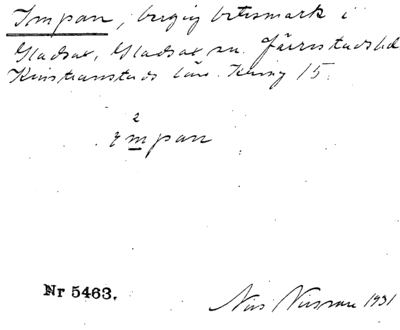 Impan, bergig betesmark i
Gladsax, Gladsax sn. Järrestads hd
Kristianstads län. Kring 15.
2
ɛmpan
Nr 5463.
Nils Nilsson 1931